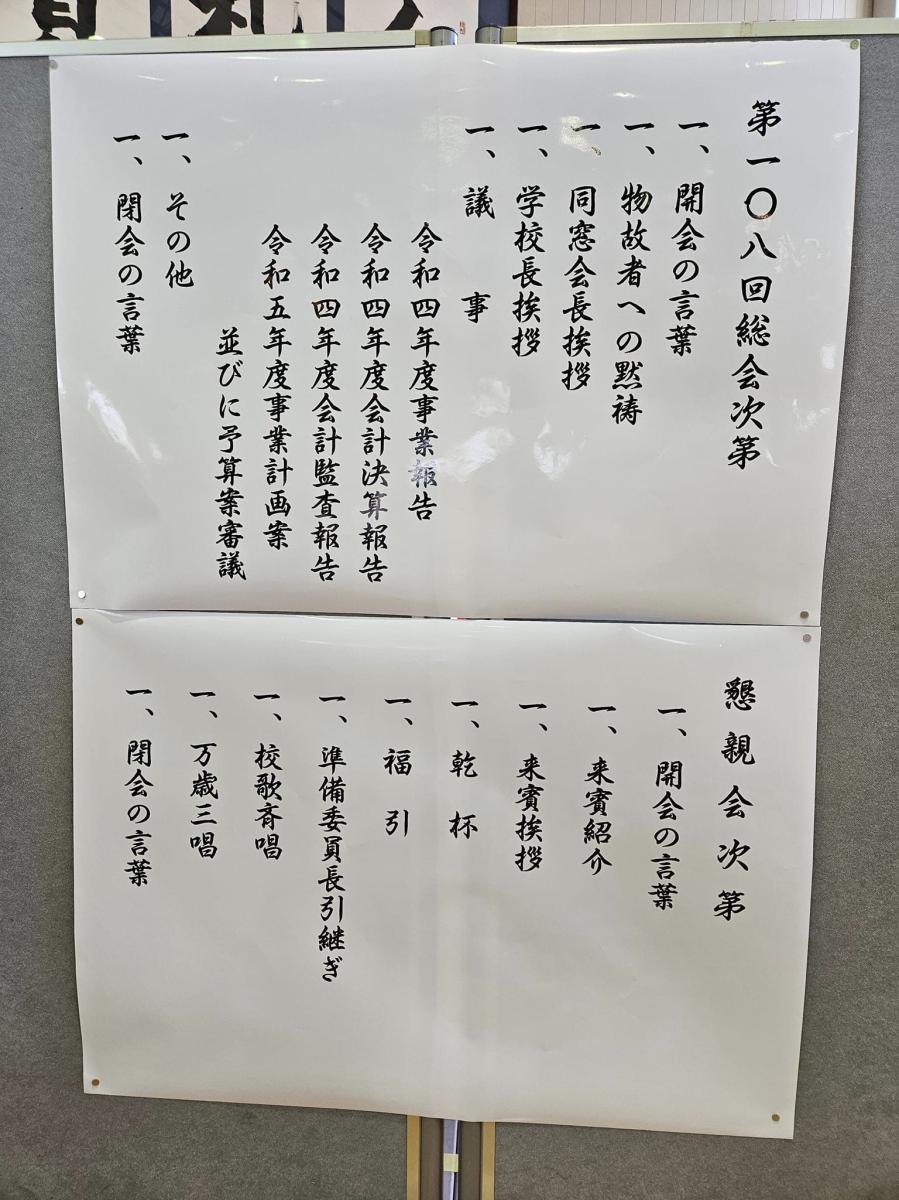 第一〇八回総会次第
一、開会の言葉
一、物故者への黙祷
一、同窓会長挨拶
一、学校長挨拶
一、議　事
令和四年度事業報告
令和四年度会計決算報告
令和四年度会計監査報告
令和五年度事業計画案
並びに予算案審議
一、その他
一、閉会の言葉
懇親会次第
一、開会の言葉
一、来賓紹介
一、来賓挨拶
一、乾　杯
一、福　引
一、準備委員長引継ぎ
一、校歌斉唱
一、万歳三唱
一、閉会の言葉